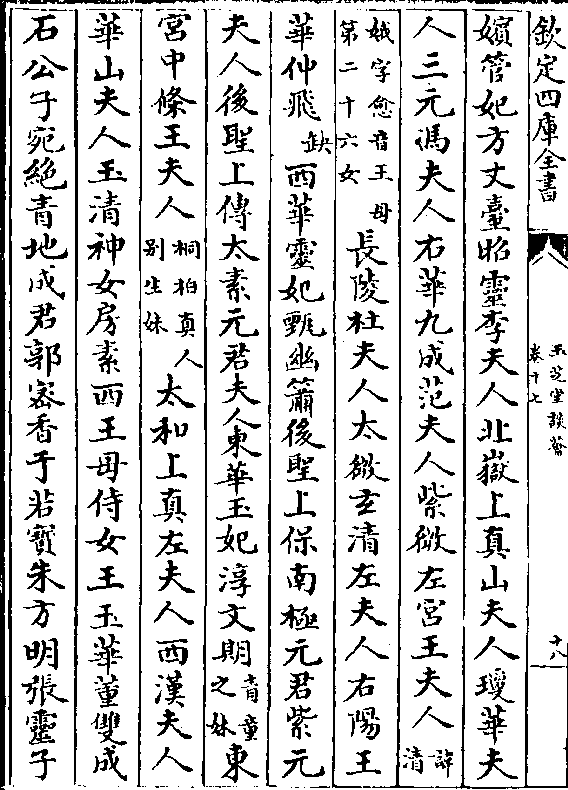 欽定四庫全書
玉芝堂談薈
卷十七
十八
嬪管妃方丈臺昭靈李夫人北嶽上真山夫人瓊華夫
人三元馮夫人右華九成范夫人紫微左宮王夫人諱清
娥字愈音王母第二十六女長陵杜夫人太微玄清左夫人右陽王
華仲飛缺西華靈妃甄幽簫後聖上保南極元君紫元
夫人後聖上傳太素元君夫人東華玉妃淳文期青童之妹東
宮中條王夫人桐柏真人别生妹太和上真左夫人西漢夫人
華山夫人玉清神女房素西王母侍女王玉華董雙成
石公子宛絶青地成君郭密香于若賓朱方明張靈子